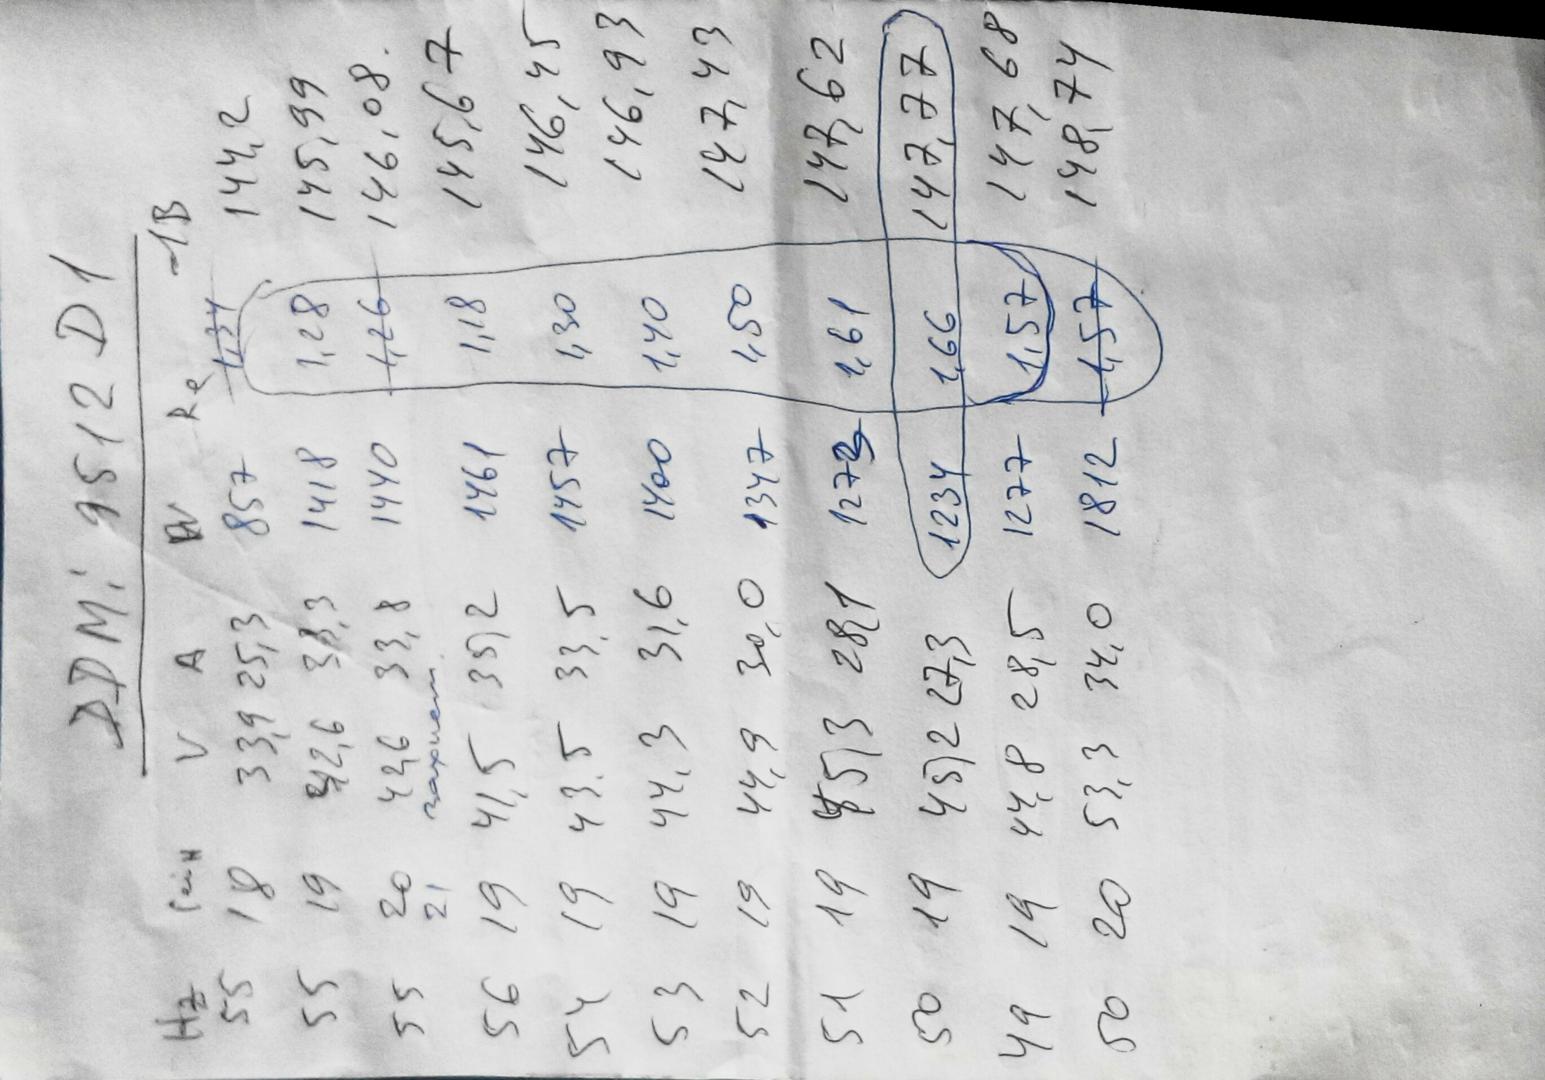 DDM: 9512 D1
Hz Гain V A W Re dB
55 18 33,9 25,3 857 1,34 144,2
55 19 42,6 33,3 1418 1,28 145,99
55 20 42,6 33,8 1440 1,26 146,08.
21
56 19 41,5 35,2 1461 1,18 145,67
54 19 43.5 33.5 1457 1,30 146,45
53 19 44,3 31,6 1400 1,40 146,93
52 19 44,9 30,0 1347 1,50 147,43
51 19 45,3 28,1 1273 1,61 147,62
50 19 45,2 27,3 1234 1,66 147,77
49 19 44,8 28,5 1277 1,57 147,68
50 20 53,3 34,0 1812 1,57 148,74